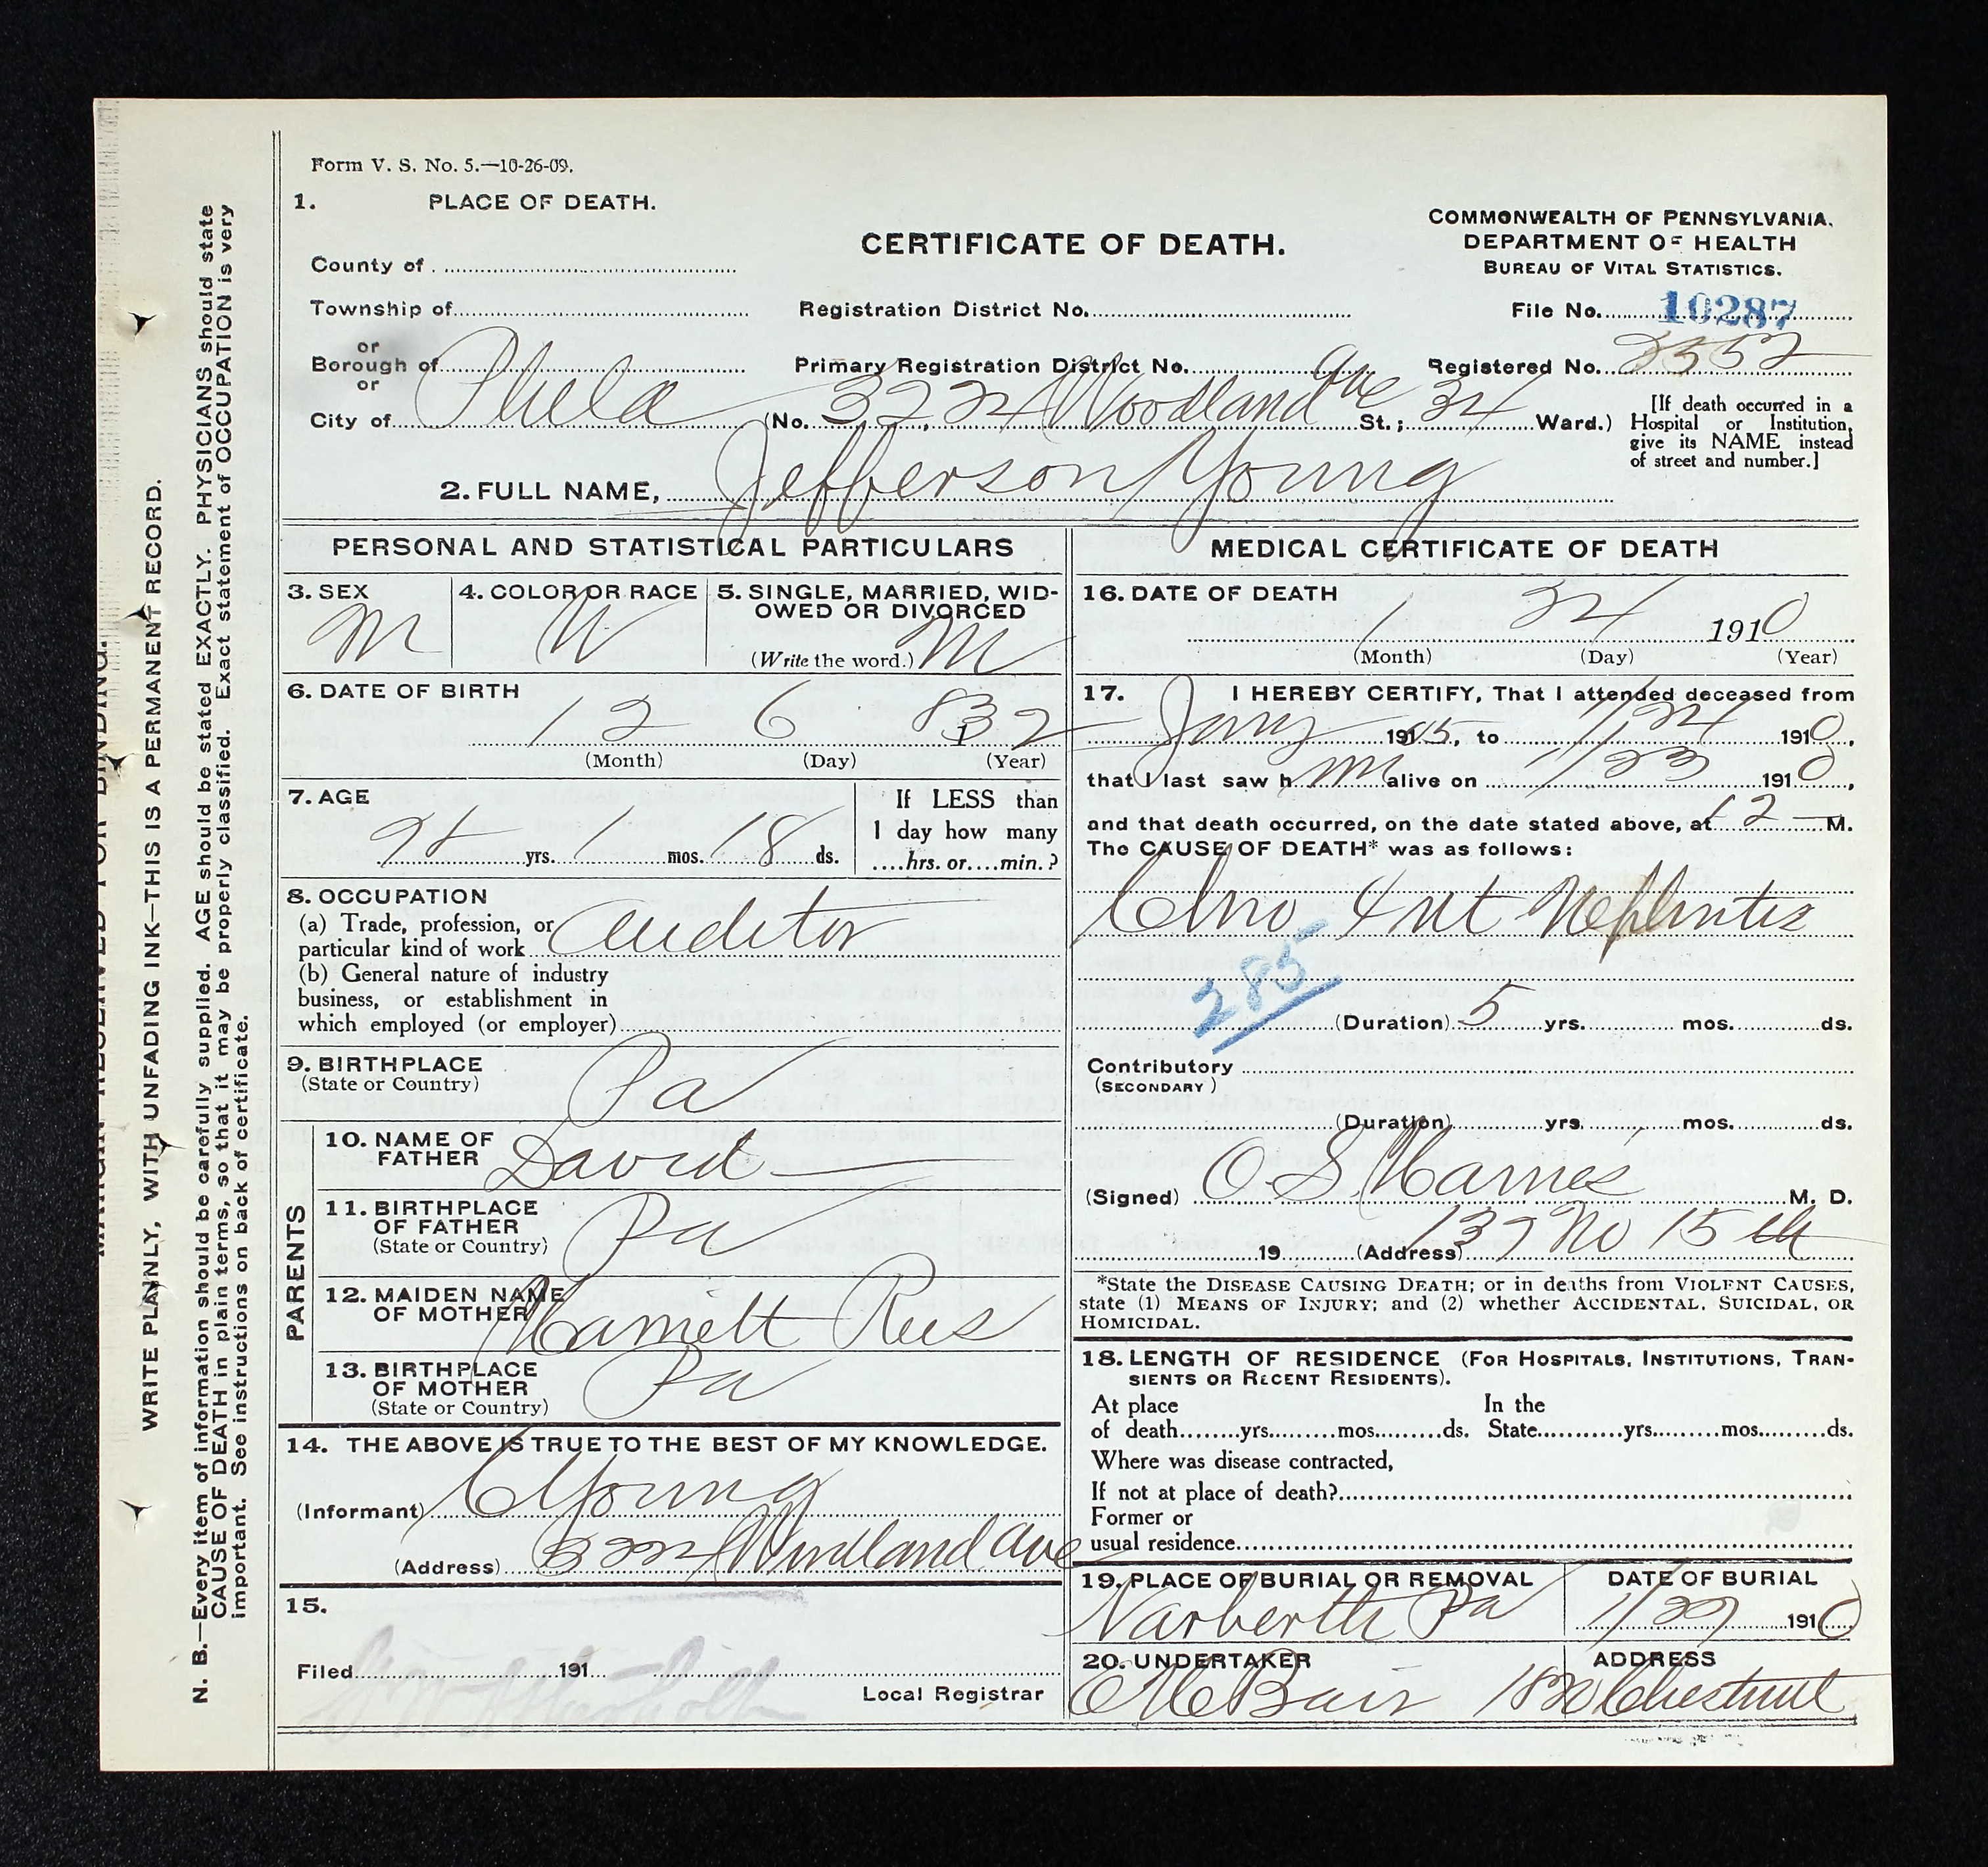 Form V. S. No. 5.—10-26-09.
1. PLACE OF DEATH.
County of
Township of
or
Borough of
or
City of Phila
CERTIFICATE OF DEATH.
COMMONWEALTH OF PENNSYLVANIA.
DEPARTMENT OF HEALTH
BUREAU OF VITAL STATISTICS.
Registration District No.
File No. 10287
Primary Registration District No.
Registered No.
(No. 3224 Woodland Ave St.; 24 Ward.)
[If death occurred in a
Hospital or Institution,
give its NAME instead
of street and number.]
2. FULL NAME, Jefferson Young
PERSONAL AND STATISTICAL PARTICULARS
3. SEX
M
4. COLOR OR RACE
W
5. SINGLE, MARRIED, WID-
OWED OR DIVORCED
(Write the word.) M
6. DATE OF BIRTH
12 6 1832
(Month) (Day) (Year)
7. AGE
yrs. 1 mos. 18 ds.
If LESS than
1 day how many
hrs. or min.?
8. OCCUPATION
(a) Trade, profession, or
particular kind of work Auditor
(b) General nature of industry
business, or establishment in
which employed (or employer)
9. BIRTHPLACE
(State or Country) Pa
PARENTS
10. NAME OF
FATHER David
11. BIRTHPLACE
OF FATHER
(State or Country) Pa
12. MAIDEN NAME
OF MOTHER Harriett Rees
13. BIRTHPLACE
OF MOTHER
(State or Country) Pa
14. THE ABOVE IS TRUE TO THE BEST OF MY KNOWLEDGE.
(Informant) C Young
(Address) 3224 Woodland Ave
15.
Filed 191
Local Registrar
MEDICAL CERTIFICATE OF DEATH
16. DATE OF DEATH
1 24 1910
(Month) (Day) (Year)
17. I HEREBY CERTIFY, That I attended deceased from
Jany 1905, to 1/24 1910,
that I last saw him alive on 1/23 1910,
and that death occurred, on the date stated above, at 12 M.
The CAUSE OF DEATH* was as follows:
Chro Int Nephritis
285
(Duration) 5 yrs. mos. ds.
Contributory
(SECONDARY)
(Duration) yrs. mos. ds.
(Signed) O. S. Harnes M. D.
19 (Address) 137 No 15th
*State the DISEASE CAUSING DEATH; or in deaths from VIOLENT CAUSES,
state (1) MEANS OF INJURY; and (2) whether ACCIDENTAL, SUICIDAL, OR
HOMICIDAL.
18. LENGTH OF RESIDENCE (FOR HOSPITALS, INSTITUTIONS, TRAN-
SIENTS OR RECENT RESIDENTS).
At place In the
of death yrs. mos. ds. State yrs. mos. ds.
Where was disease contracted,
If not at place of death?
Former or
usual residence
19. PLACE OF BURIAL OR REMOVAL
Narberth Pa
DATE OF BURIAL
1910
20. UNDERTAKER
Bair
ADDRESS
1820 Chestnut
MARGIN RESERVED FOR BINDING.
WRITE PLAINLY, WITH UNFADING INK—THIS IS A PERMANENT RECORD.
N. B.—Every item of information should be carefully supplied. AGE should be stated EXACTLY. PHYSICIANS should state
CAUSE OF DEATH in plain terms, so that it may be properly classified. Exact statement of OCCUPATION is very
important. See instructions on back of certificate.